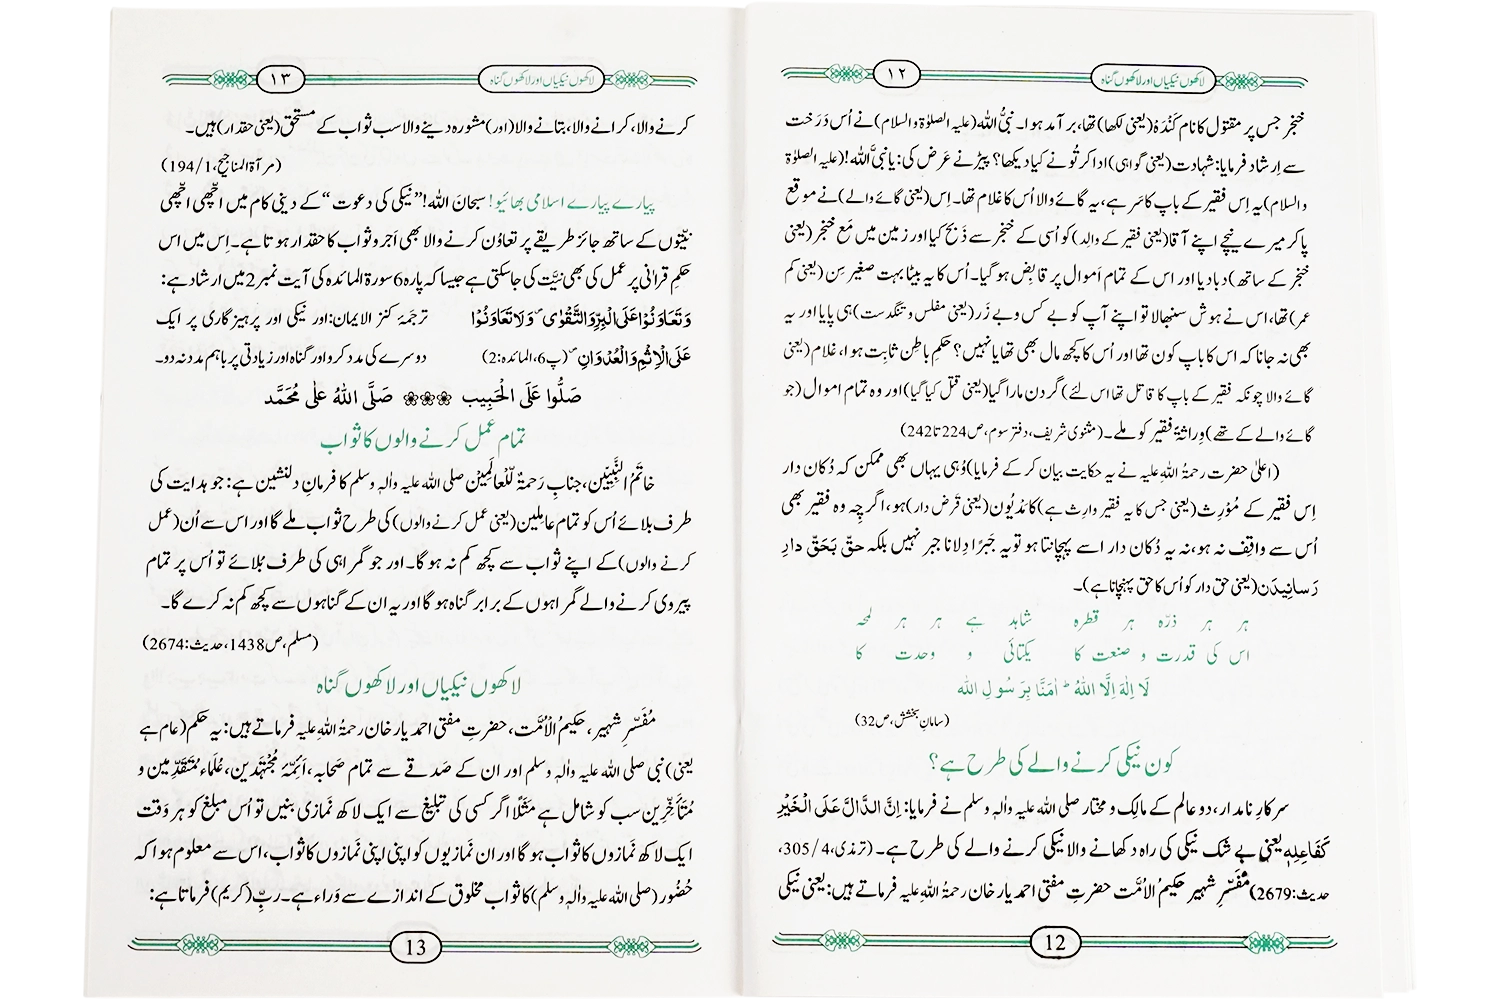 لاکھوں نیکیاں اور لاکھوں گناہ
۱۲
خنجر جس پر مقتول کا نام کَنْدَہ (یعنی لکھا) تھا، برآمد ہوا۔ نبیُّ اللہ (علیہ الصلوٰۃ والسلام) نے اُس دَرَخت
سے اِرشاد فرمایا: شہادت (یعنی گواہی) ادا کر تُو نے کیا دیکھا؟ پیڑ نے عَرض کی: یا نبیَّ اللہ! (علیہ الصلوٰۃ
والسلام) یہ اِس فقیر کے باپ کا سَر ہے، یہ گائے والا اُس کا غلام تھا۔ اِس (یعنی گائے والے) نے موقع
پا کر میرے نیچے اپنے آقا (یعنی فقیر کے والِد) کو اُسی کے خنجر سے ذَبح کیا اور زمین میں مَع خنجر (یعنی
خنجر کے ساتھ) دبا دیا اور اس کے تمام اَموال پر قابِض ہو گیا۔ اُس کا یہ بیٹا بہت صغیر سِن (یعنی کم
عمر) تھا، اس نے ہوش سنبھالا تو اپنے آپ کو بے کس و بے زَر (یعنی مفلس و تنگدست) ہی پایا اور یہ
بھی نہ جانا کہ اس کا باپ کون تھا اور اُس کا کچھ مال بھی تھا یا نہیں؟ حکمِ باطِن ثابِت ہوا، غلام (یعنی
گائے والا چونکہ فقیر کے باپ کا قاتل تھا اس لئے) گردن مارا گیا (یعنی قتل کیا گیا) اور وہ تمام اموال (جو
گائے والے کے تھے) وِراثۃً فقیر کو ملے۔ (مثنوی شریف، دفتر سوم، ص224 تا 242)
(اعلیٰ حضرت رحمۃُ اللہِ علیہ نے یہ حکایت بیان کر کے فرمایا) وُہی یہاں بھی ممکن کہ دُکان دار
اِس فقیر کے مُوْرِث (یعنی جس کا یہ فقیر وارِث ہے) کا مَدْیُون (یعنی قَرض دار) ہو، اگرچہ وہ فقیر بھی
اُس سے واقِف نہ ہو، نہ یہ دُکان دار اسے پہچانتا ہو تو یہ جَبْرًا دِلانا جبر نہیں بلکہ حقّ بَحَقّ دار
رَسانِیدَن (یعنی حق دار کو اُس کا حق پہنچانا ہے)۔
ہر ہر ذرّہ ہر قطرہ شاہد ہے ہر ہر لمحہ
اس کی قدرت و صنعت کا یکتائی و وحدت کا
لَا اِلٰہَ اِلَّا اللہُ ؕ اٰمَنَّا بِرَسُولِ اللہ
(سامانِ بخشش، ص32)
کون نیکی کرنے والے کی طرح ہے؟
سرکارِ نامدار، دو عالم کے مالِک و مختار صلی اللہ علیہ واٰلہٖ وسلم نے فرمایا: اِنَّ الدَّالَّ عَلَی الْخَیْرِ
کَفَاعِلِہٖ یعنی بے شک نیکی کی راہ دکھانے والا نیکی کرنے والے کی طرح ہے۔ (ترمذی، 4/305،
حدیث: 2679) مُفَسِّرِ شہیر حکیمُ الاُمَّت حضرتِ مفتی احمد یار خان رحمۃُ اللہِ علیہ فرماتے ہیں: یعنی نیکی
12
لاکھوں نیکیاں اور لاکھوں گناہ
۱۳
کرنے والا، کرانے والا، بتانے والا (اور) مشورہ دینے والا سب ثواب کے مستحق (یعنی حقدار) ہیں۔
(مرآۃ المناجیح، 1/194)
پیارے پیارے اسلامی بھائیو! سبحانَ اللہ! ”نیکی کی دعوت“ کے دینی کام میں اچّھی اچّھی
نیّتوں کے ساتھ جائز طریقے پر تعاوُن کرنے والا بھی اَجرو ثواب کا حقدار ہوتا ہے۔ اِس میں اس
حکمِ قراٰنی پر عمل کی بھی نیَّت کی جاسکتی ہے جیسا کہ پارہ 6 سورۃُ المائدہ کی آیت نمبر 2 میں ارشاد ہے:
وَتَعَاوَنُوْا عَلَی الْبِرِّ وَالتَّقْوٰی ۪ وَلَا تَعَاوَنُوْا ترجَمۂ کنز الایمان: اور نیکی اور پرہیزگاری پر ایک
عَلَی الْاِثْمِ وَالْعُدْوَانِ ۪ (پ6، المائدہ: 2) دوسرے کی مدد کرو اور گناہ اور زیادتی پر باہم مدد نہ دو۔
صَلُّوا عَلَی الْحَبِیب ❀❀❀ صَلَّی اللہُ عَلٰی مُحَمَّد
تمام عمل کرنے والوں کا ثواب
خاتَمُ النَّبِیّٖن، جنابِ رَحمۃٌ لِّلْعٰلَمِیْن صلی اللہ علیہ واٰلہٖ وسلم کا فرمانِ دلنشین ہے: جو ہدایت کی
طرف بلائے اُس کو تمام عاملِین (یعنی عمل کرنے والوں) کی طرح ثواب ملے گا اور اس سے اُن (عمل
کرنے والوں) کے اپنے ثواب سے کچھ کم نہ ہو گا۔ اور جو گمراہی کی طرف بُلائے تو اُس پر تمام
پیروی کرنے والے گمراہوں کے برابر گناہ ہو گا اور یہ ان کے گناہوں سے کچھ کم نہ کرے گا۔
(مسلم، ص1438، حدیث: 2674)
لاکھوں نیکیاں اور لاکھوں گناہ
مُفَسِّرِ شہیر، حکیمُ الْاُمَّت، حضرتِ مفتی احمد یار خان رحمۃُ اللہِ علیہ فرماتے ہیں: یہ حکم (عام ہے
یعنی) نبی صلی اللہ علیہ واٰلہٖ وسلم اور ان کے صَدقے سے تمام صَحابہ، اَئِمَّۂ مُجْتَہِدین، عُلَماء مُتَقَدِّمین و
مُتَأَخِّرین سب کو شامل ہے مَثَلًا اگر کسی کی تبلیغ سے ایک لاکھ نَمازی بنیں تو اُس مبلغ کو ہر وَقت
ایک لاکھ نَمازوں کا ثواب ہو گا اور ان نَمازیوں کو اپنی اپنی نَمازوں کا ثواب، اس سے معلوم ہوا کہ
حُضُور (صلی اللہ علیہ واٰلہٖ وسلم) کا ثواب مخلوق کے اندازے سے وَراء ہے۔ ربِّ (کریم) فرماتا ہے:
13